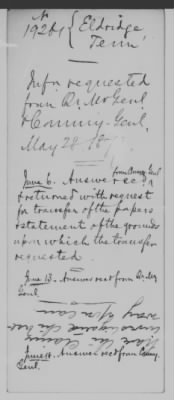 No
19241 { Eldridge,
Tenn
Infor requested
from Qr. Mr. Genl
& Commy. Genl.
May 28
June 6. Answer rec'd from Commy. Genl
& returned with request
for transfer of the papers
& statement of the grounds
upon which the transfer
requested.
June 13. Answer rec'd from Qr. Mr.
Genl.
June 19. Answer rec'd from Commy.
Genl.